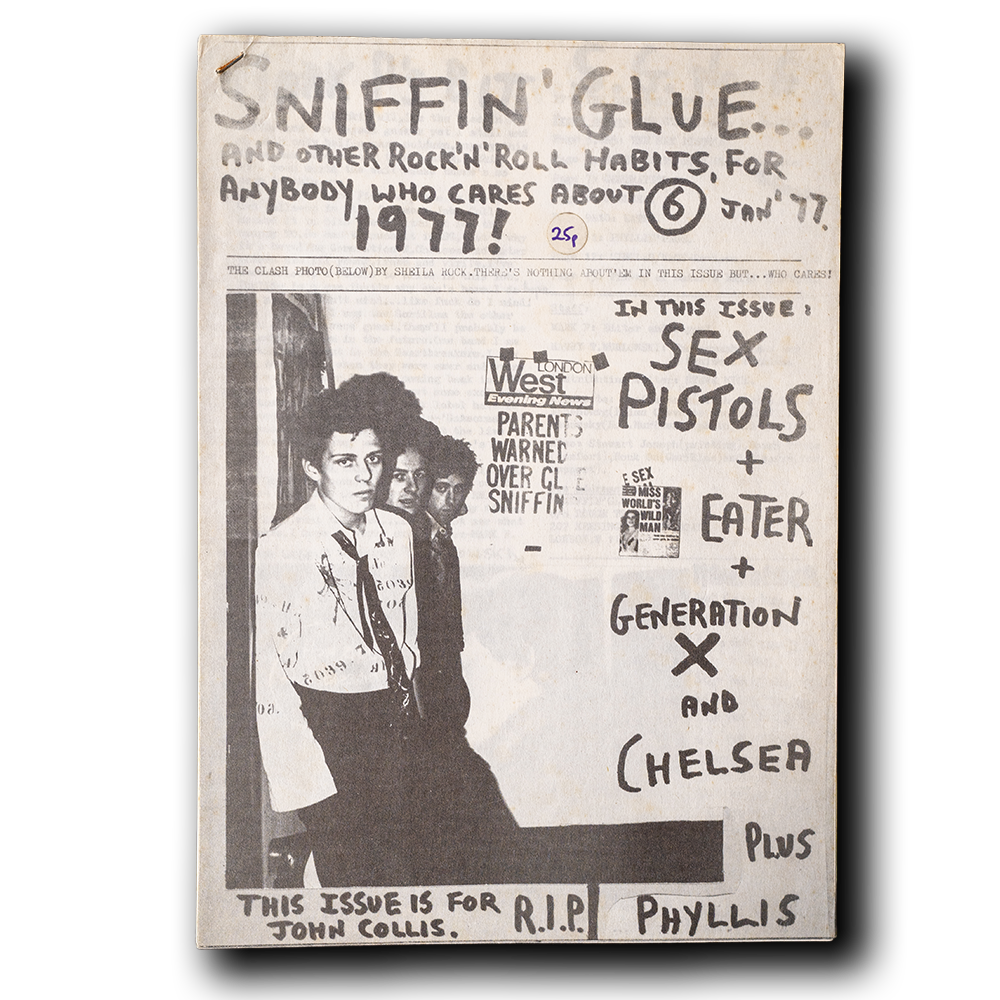 SNIFFIN' GLUE...
AND OTHER ROCK'N'ROLL HABITS, FOR
ANYBODY WHO CARES ABOUT ⑥ JAN' 77.
1977!
25p
THE CLASH PHOTO(BELOW)BY SHEILA ROCK.THERE'S NOTHING ABOUT'EM IN THIS ISSUE BUT...WHO CARES!
IN THIS ISSUE:
SEX
PISTOLS
+
EATER
+
GENERATION
X
AND
CHELSEA
PLUS
PHYLLIS
LONDON
West
Evening News
PARENTS
WARNED
OVER GL E
SNIFFIN
E SEX
MISS
WORLD'S
WILD
MAN
THIS ISSUE IS FOR
JOHN COLLIS.
R.I.P.